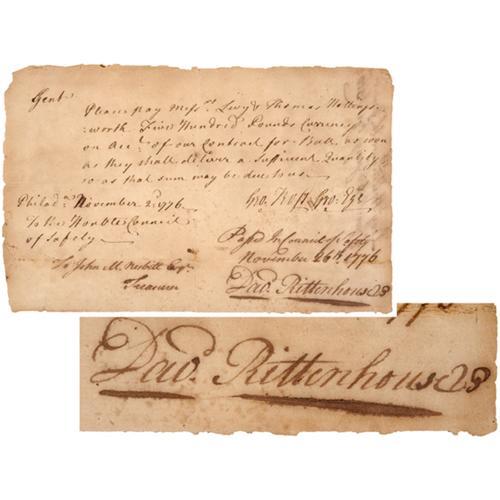 Gent.
Please Pay Mess.rs Levy & Thomas Hollings-
:worth Five Hundred Pounds Currency
on Acc.t of our Contract for Ball, as soon
as they shall deliver a Sufficient Quantity
so as that sum may be due them
Philad.a November 2.d 1776
Geo. Ross Geo:
To the Honble Council
of Safety
Pass'd in Council of Safety
November 26th 1776
To John M. Nesbitt Esq.r
Treasurer
Dav.d Rittenhouse
Dav.d Rittenhouse